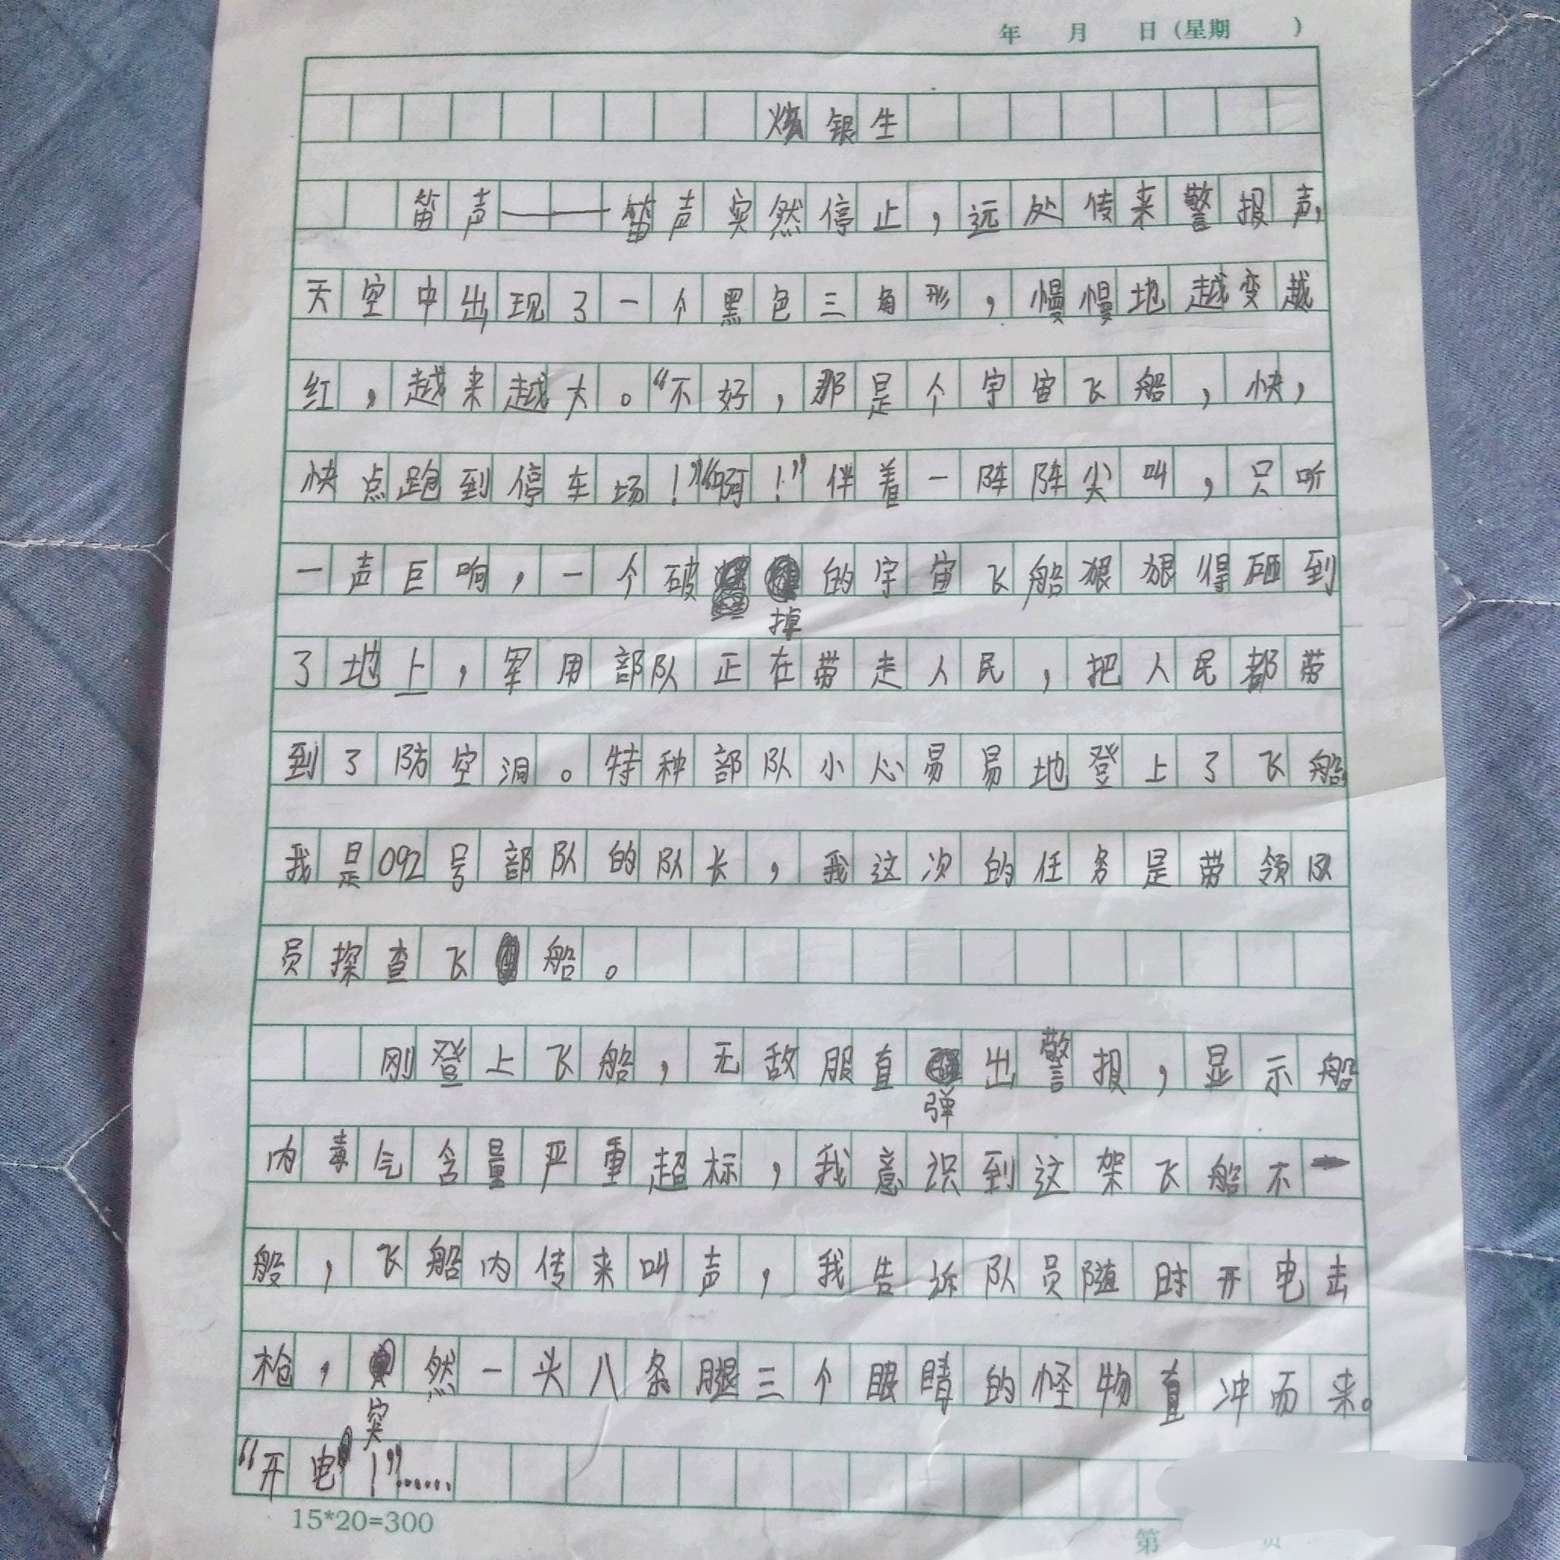 年 月 日（星期 ）
银生
笛声——笛声突然停止，远处传来警报声，
天空中出现了一个黑色三角形，慢慢地越变越
红，越来越大。“不好，那是个宇宙飞船，快，
快点跑到停车场！”“啊！”伴着一阵阵尖叫，只听
一声巨响，一个破掉的宇宙飞船狠狠得砸到
了地上，军用部队正在带走人民，把人民都带
到了防空洞。特种部队小心易易地登上了飞船
我是092号部队的队长，我这次的任务是带领队
员探查飞船。
刚登上飞船，无敌服直弹出警报，显示船
内毒气含量严重超标，我意识到这架飞船不一
般，飞船内传来叫声，我告诉队员随时开电击
枪，突然一头八条腿三个眼睛的怪物直冲而来。
“开电！”……
15*20=300
第 页